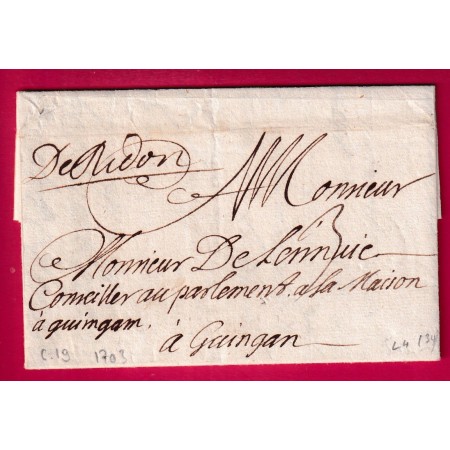 De Redon
A Monsieur
3
Monsieur De Lenniuic
Conseiller au parlement a la Maison
à guimgam.
à Guingan
C-19 1703
L4